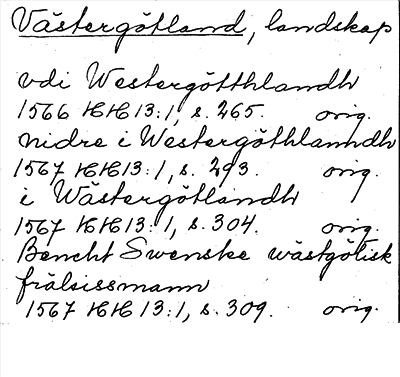 Västergötland, landskap
vdi Westergötthlandh
1566 HH 13:1, s. 265. orig.
nidre i Westergöthlanndh
1567 HH 13:1, s. 293. orig.
i Wästergötlandh
1567 HH 13:1, s. 304. orig.
Bencht Swenske wästgötisk
frälsissmann
1567 HH 13:1, s. 309. orig.